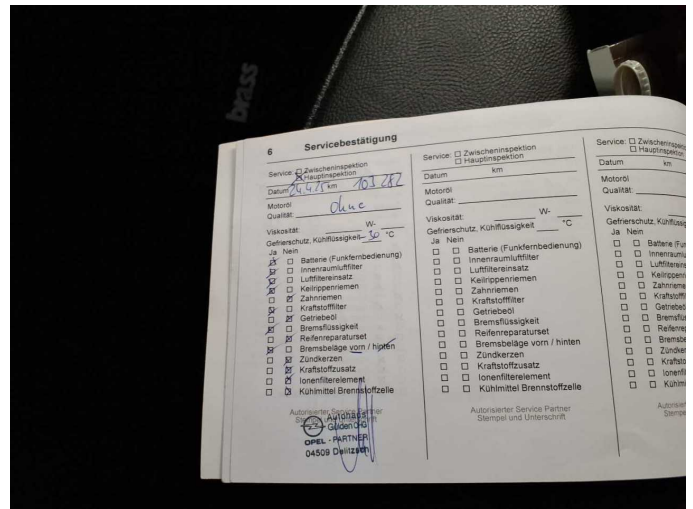 brass
6 Servicebestätigung
Service: Zwischeninspektion
Hauptinspektion
Datum 24.4.25 km 103 282
Motoröl
Qualität: Ohne
Viskosität: W-
Gefrierschutz, Kühlflüssigkeit -30 °C
Ja Nein
Batterie (Funkfernbedienung)
Innenraumluftfilter
Luftfiltereinsatz
Keilrippenriemen
Zahnriemen
Kraftstofffilter
Getriebeöl
Bremsflüssigkeit
Reifenreparaturset
Bremsbeläge vorn / hinten
Zündkerzen
Kraftstoffzusatz
Ionenfilterelement
Kühlmittel Brennstoffzelle
Autorisierter Service Partner
Stempel und Unterschrift
Autohaus
Gulden OHG
OPEL - PARTNER
04509 Delitzsch
Service: Zwischeninspektion
Hauptinspektion
Datum km
Motoröl
Qualität:
Viskosität: W-
Gefrierschutz, Kühlflüssigkeit °C
Ja Nein
Batterie (Funkfernbedienung)
Innenraumluftfilter
Luftfiltereinsatz
Keilrippenriemen
Zahnriemen
Kraftstofffilter
Getriebeöl
Bremsflüssigkeit
Reifenreparaturset
Bremsbeläge vorn / hinten
Zündkerzen
Kraftstoffzusatz
Ionenfilterelement
Kühlmittel Brennstoffzelle
Autorisierter Service Partner
Stempel und Unterschrift
Service: Zwischeninspekt
Hauptinspektion
Datum km
Motoröl
Qualität:
Viskosität:
Gefrierschutz, Kühlflüssig
Ja Nein
Batterie (Fun
Innenraumlu
Luftfiltereins
Keilrippenn
Zahnrieme
Kraftstofffi
Getriebeöl
Bremsflüs
Reifenrep
Bremsbe
Zündker
Kraftsto
Ionenfil
Kühlmi
Autorisier
Stempe